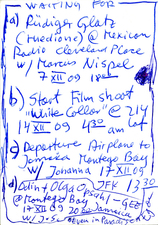 — WAITING FOR —
a) Rüdiger Glatz
(Huedione) @ Mexican
Radio Cleveland Place
w/ Marcus Nispel
7 XII 09 1 pm
b) Start Film shoot
"White Collar" @ 214
14 XII 09 4³⁰ am Lot
c) Departure Airplane to
Jamaica Montego Bay
w/ Johanna 17 XII 09
d) Colin + Olga @ JFK 13³⁰
@ Montego Bay
17 XII 09 20³⁰ Jamaica